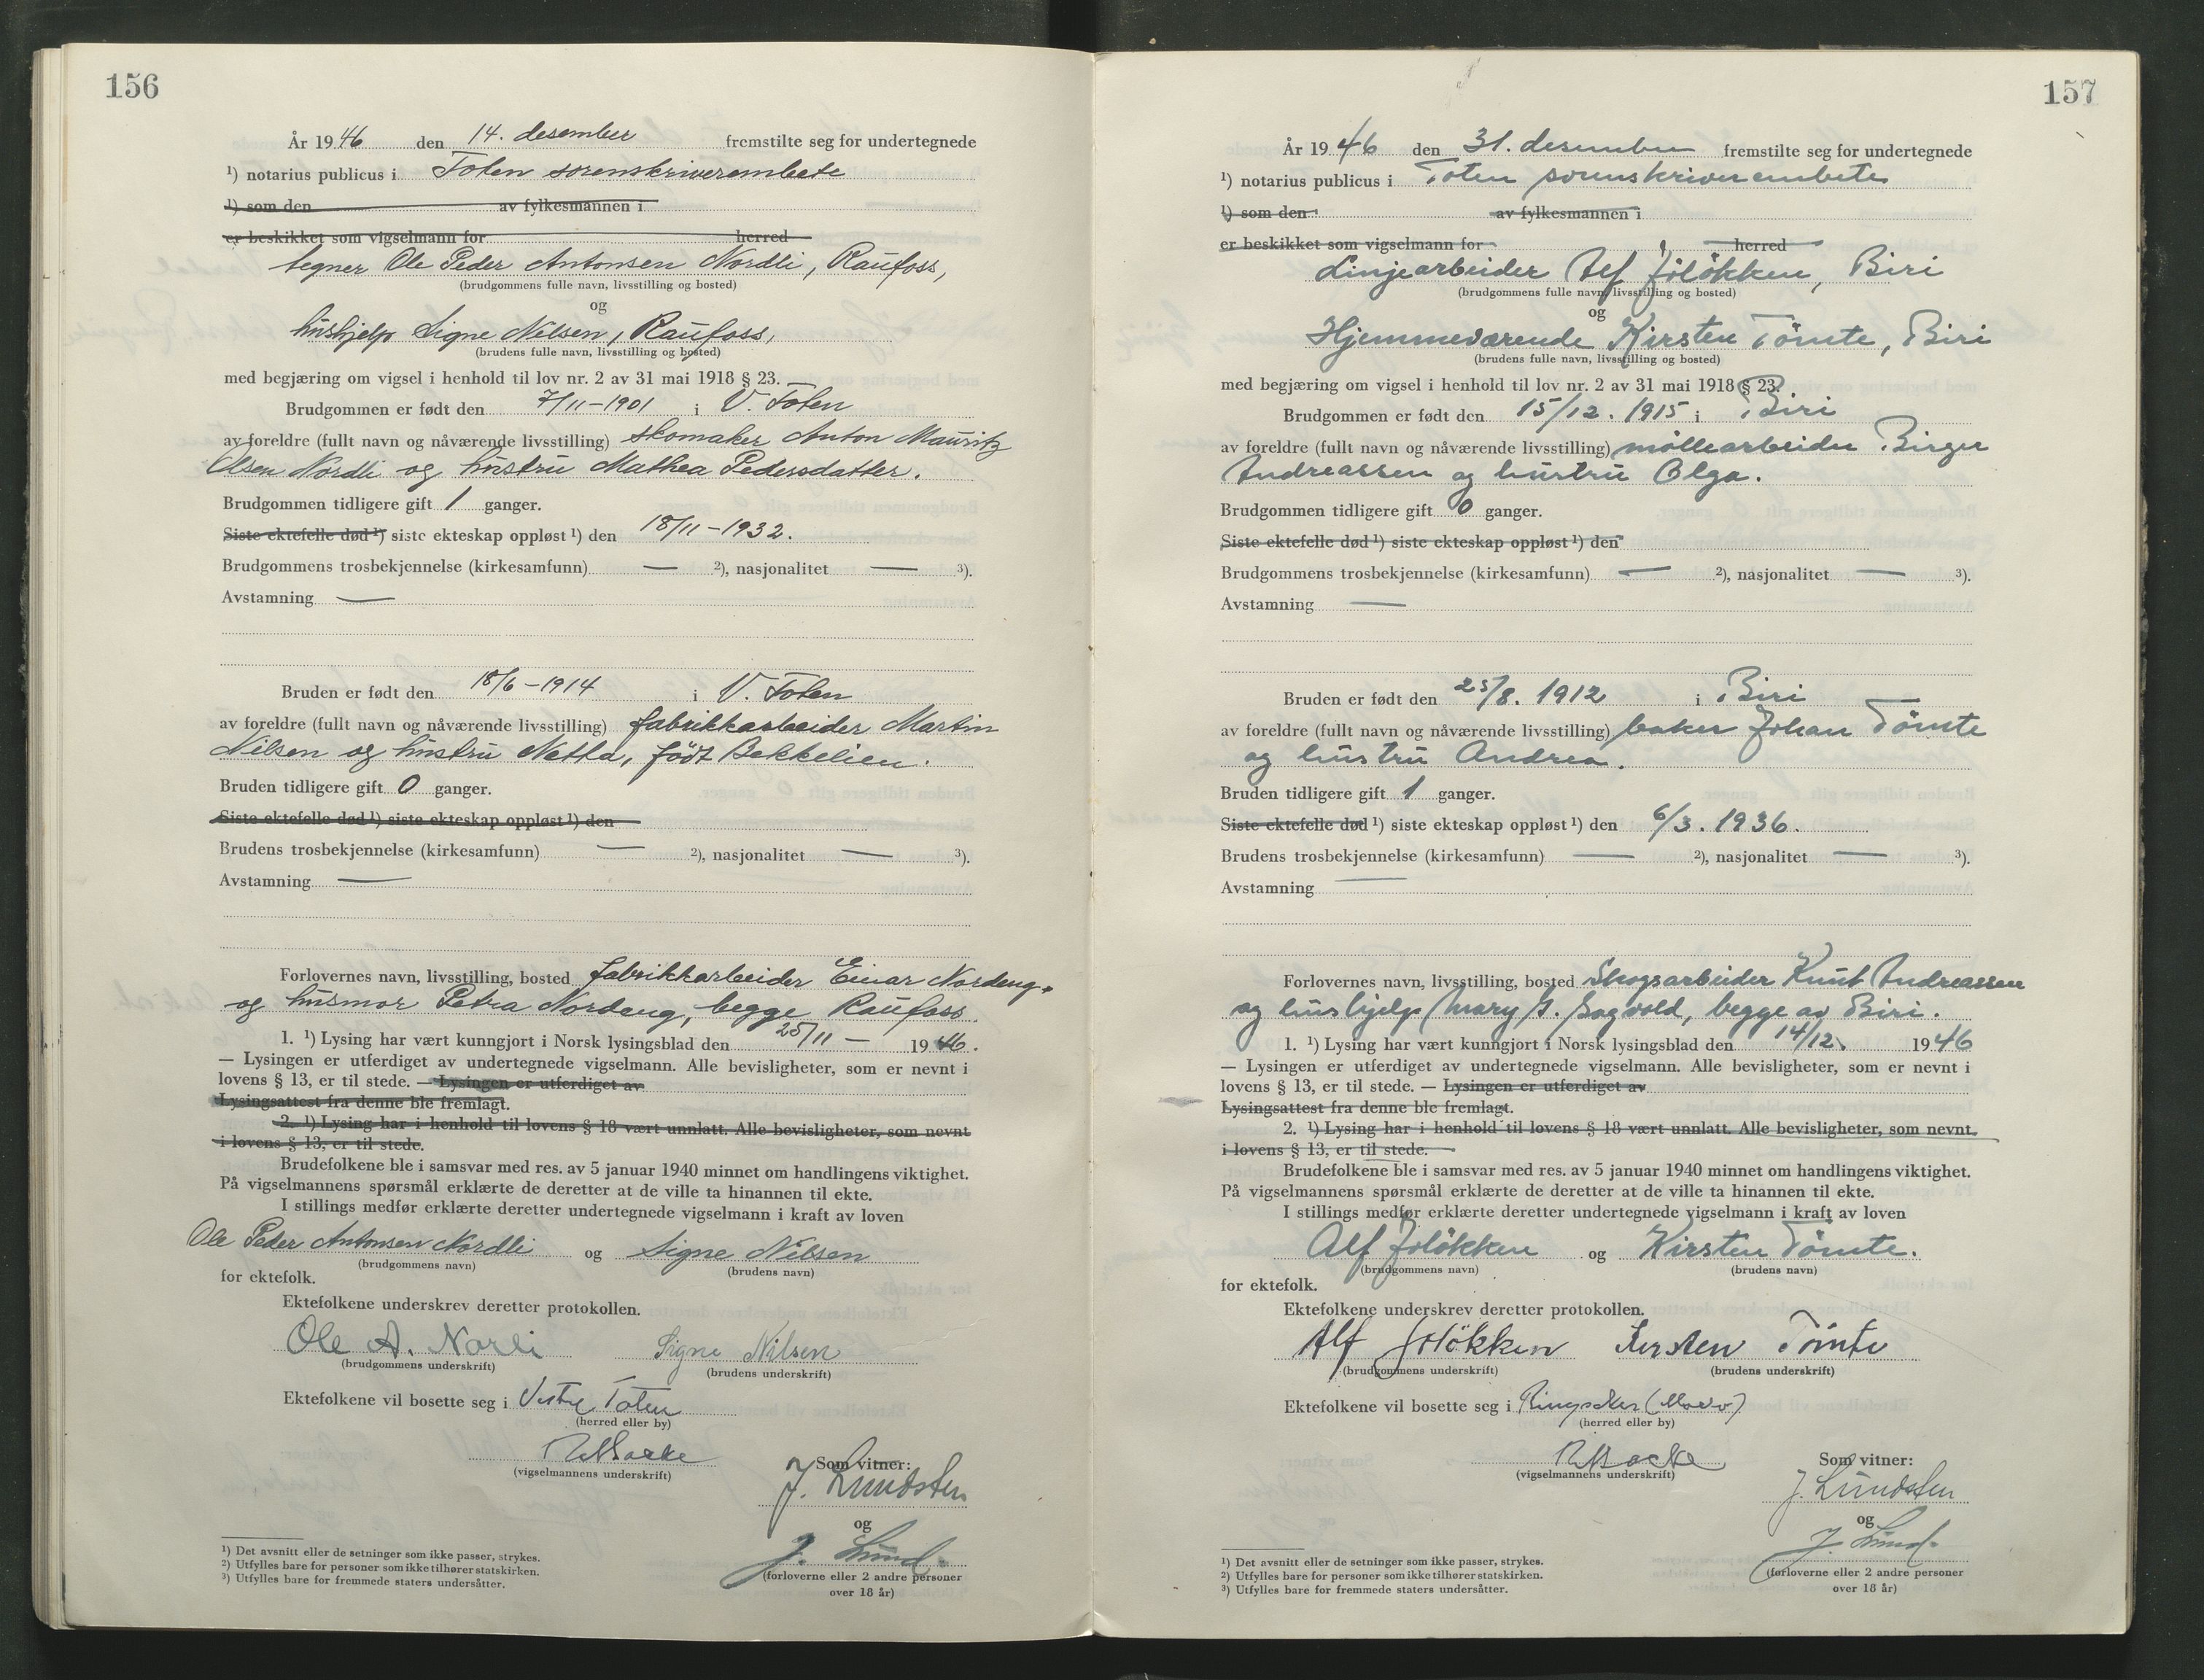 156
År 1946 den 14. desember fremstilte seg for undertegnede
¹) notarius publicus i Toten sorenskriverembete
¹) som den av fylkesmannen i
er beskikket som vigselmann for herred
tegner Ole Peder Antonsen Nordli, Raufoss,
(brudgommens fulle navn, livsstilling og bosted)
og
hushjelp Signe Nilsen, Raufoss,
(brudens fulle navn, livsstilling og bosted)
med begjæring om vigsel i henhold til lov nr. 2 av 31 mai 1918 § 23.
Brudgommen er født den 7/11-1901 i V. Toten
av foreldre (fullt navn og nåværende livsstilling) skomaker Anton Mauritz
Olsen Nordli og hustru Mathea Pedersdatter.
Brudgommen tidligere gift 1 ganger.
Siste ektefelle død ¹) siste ekteskap oppløst ¹) den 18/11-1932.
Brudgommens trosbekjennelse (kirkesamfunn) — ²), nasjonalitet — ³).
Avstamning —
Bruden er født den 18/6-1914 i V. Toten
av foreldre (fullt navn og nåværende livsstilling) fabrikkarbeider Martin
Nilsen og hustru Netta, født Bekkelien.
Bruden tidligere gift 0 ganger.
Siste ektefelle død ¹) siste ekteskap oppløst ¹) den
Brudens trosbekjennelse (kirkesamfunn) — ²), nasjonalitet — ³).
Avstamning —
Forlovernes navn, livsstilling, bosted fabrikkarbeider Einar Nordeng
og husmor Petra Nordeng, begge Raufoss.
1. ¹) Lysing har vært kunngjort i Norsk lysingsblad den 25/11 — 1946.
— Lysingen er utferdiget av undertegnede vigselmann. Alle bevisligheter, som er nevnt i
lovens § 13, er til stede. — Lysingen er utferdiget av
Lysingsattest fra denne ble fremlagt.
2. ¹) Lysing har i henhold til lovens § 18 vært unnlatt. Alle bevisligheter, som nevnt
i lovens § 13, er til stede.
Brudefolkene ble i samsvar med res. av 5 januar 1940 minnet om handlingens viktighet.
På vigselmannens spørsmål erklærte de deretter at de ville ta hinannen til ekte.
I stillings medfør erklærte deretter undertegnede vigselmann i kraft av loven
Ole Peder Antonsen Nordli og Signe Nilsen
(brudgommens navn) (brudens navn)
for ektefolk.
Ektefolkene underskrev deretter protokollen.
Ole A. Norli Signe Nilsen
(brudgommens underskrift) (brudens underskrift)
Ektefolkene vil bosette seg i Vestre Toten
(herred eller by)
(vigselmannens underskrift)
Som vitner:
J. Lundsten
og
J. Lund
(forloverne eller 2 andre personer
over 18 år)
¹) Det avsnitt eller de setninger som ikke passer, strykes.
²) Utfylles bare for personer som ikke tilhører statskirken.
³) Utfylles bare for fremmede staters undersåtter.
157
År 1946 den 31. desember fremstilte seg for undertegnede
¹) notarius publicus i Toten sorenskriverembete
¹) som den av fylkesmannen i
er beskikket som vigselmann for herred
Linjearbeider Alf Joløkken, Biri
(brudgommens fulle navn, livsstilling og bosted)
og
Hjemmeværende Kirsten Tömte, Biri
(brudens fulle navn, livsstilling og bosted)
med begjæring om vigsel i henhold til lov nr. 2 av 31 mai 1918 § 23.
Brudgommen er født den 15/12. 1915 i Biri
av foreldre (fullt navn og nåværende livsstilling) möllearbeider Birger
Andreassen og hustru Olga.
Brudgommen tidligere gift 0 ganger.
Siste ektefelle død ¹) siste ekteskap oppløst ¹) den
Brudgommens trosbekjennelse (kirkesamfunn) — ²), nasjonalitet — ³).
Avstamning —
Bruden er født den 25/8. 1912 i Biri
av foreldre (fullt navn og nåværende livsstilling) baker Johan Tömte
og hustru Andrea.
Bruden tidligere gift 1 ganger.
Siste ektefelle død ¹) siste ekteskap oppløst ¹) den 6/3. 1936.
Brudens trosbekjennelse (kirkesamfunn) — ²), nasjonalitet — ³).
Avstamning —
Forlovernes navn, livsstilling, bosted Skogsarbeider Knut Andreassen
og hushjelp Mary S. Sagvold, begge av Biri.
1. ¹) Lysing har vært kunngjort i Norsk lysingsblad den 14/12. 1946
— Lysingen er utferdiget av undertegnede vigselmann. Alle bevisligheter, som er nevnt i
lovens § 13, er til stede. — Lysingen er utferdiget av
Lysingsattest fra denne ble fremlagt.
2. ¹) Lysing har i henhold til lovens § 18 vært unnlatt. Alle bevisligheter, som nevnt
i lovens § 13, er til stede.
Brudefolkene ble i samsvar med res. av 5 januar 1940 minnet om handlingens viktighet.
På vigselmannens spørsmål erklærte de deretter at de ville ta hinannen til ekte.
I stillings medfør erklærte deretter undertegnede vigselmann i kraft av loven
Alf Joløkken og Kirsten Tömte.
(brudgommens navn) (brudens navn)
for ektefolk.
Ektefolkene underskrev deretter protokollen.
Alf Joløkken Kirsten Tömte
(brudgommens underskrift) (brudens underskrift)
Ektefolkene vil bosette seg i Ringsaker (Moelv)
(herred eller by)
(vigselmannens underskrift)
Som vitner:
J. Lundsten
og
J. Lund
(forloverne eller 2 andre personer
over 18 år)
¹) Det avsnitt eller de setninger som ikke passer, strykes.
²) Utfylles bare for personer som ikke tilhører statskirken.
³) Utfylles bare for fremmede staters undersåtter.